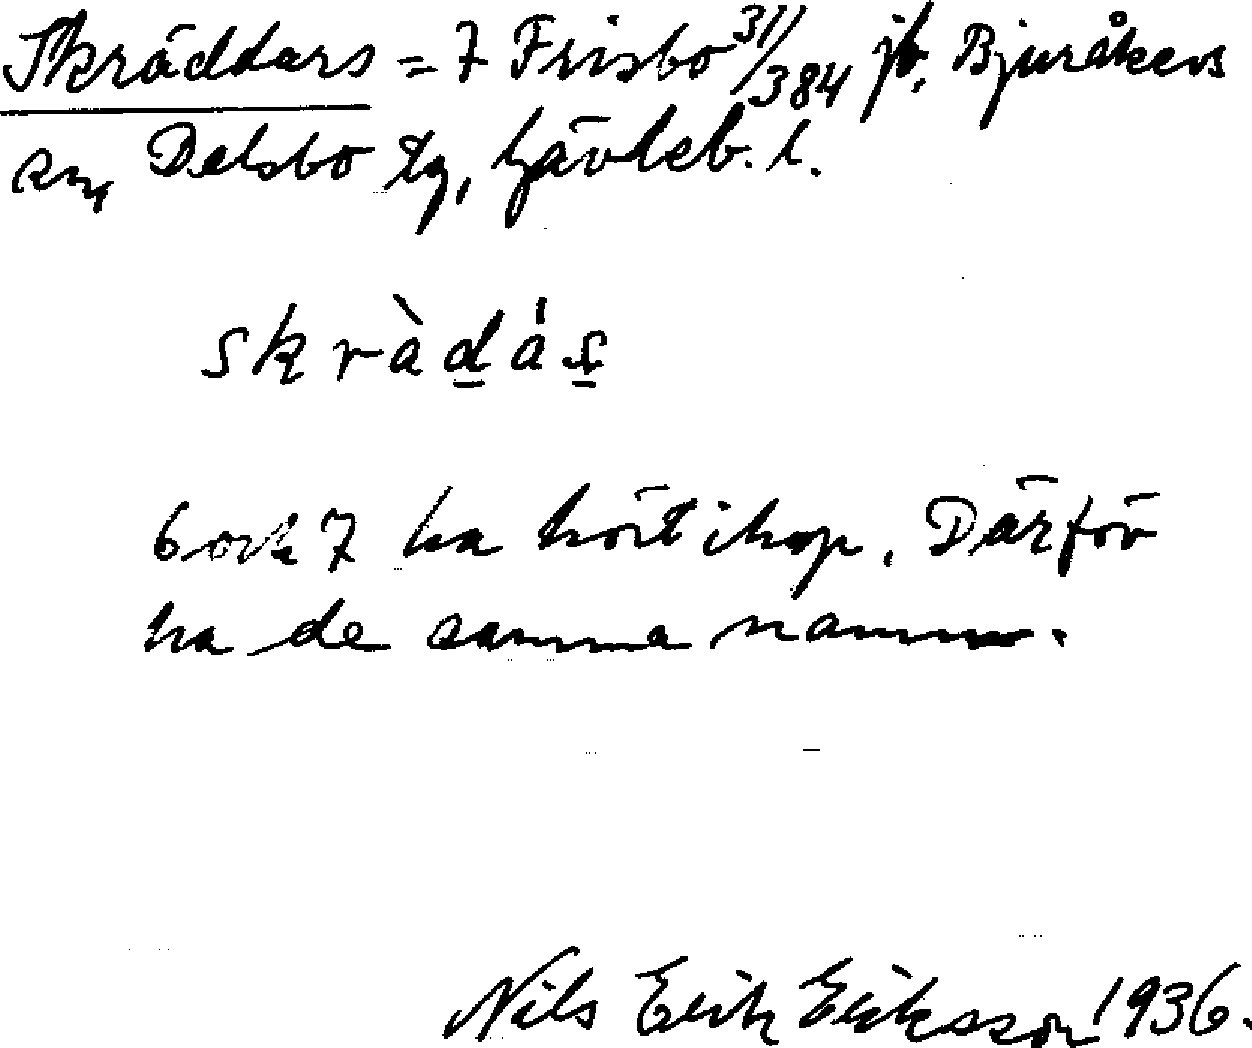 Skräddars = 7 Frisbo 311/384 jb, Bjuråkers
sn, Delsbo tg, Gävleb. l.
skràdás
6 och 7 ha hört ihop. Därför
ha de samma namn.
Nils Erik Eriksson 1936.